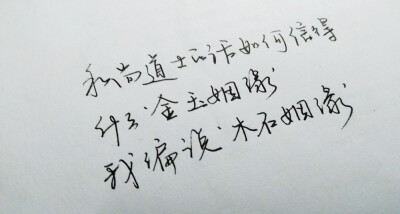 和尚道士的话如何信得
什么'金玉姻缘'
我偏说'木石姻缘'